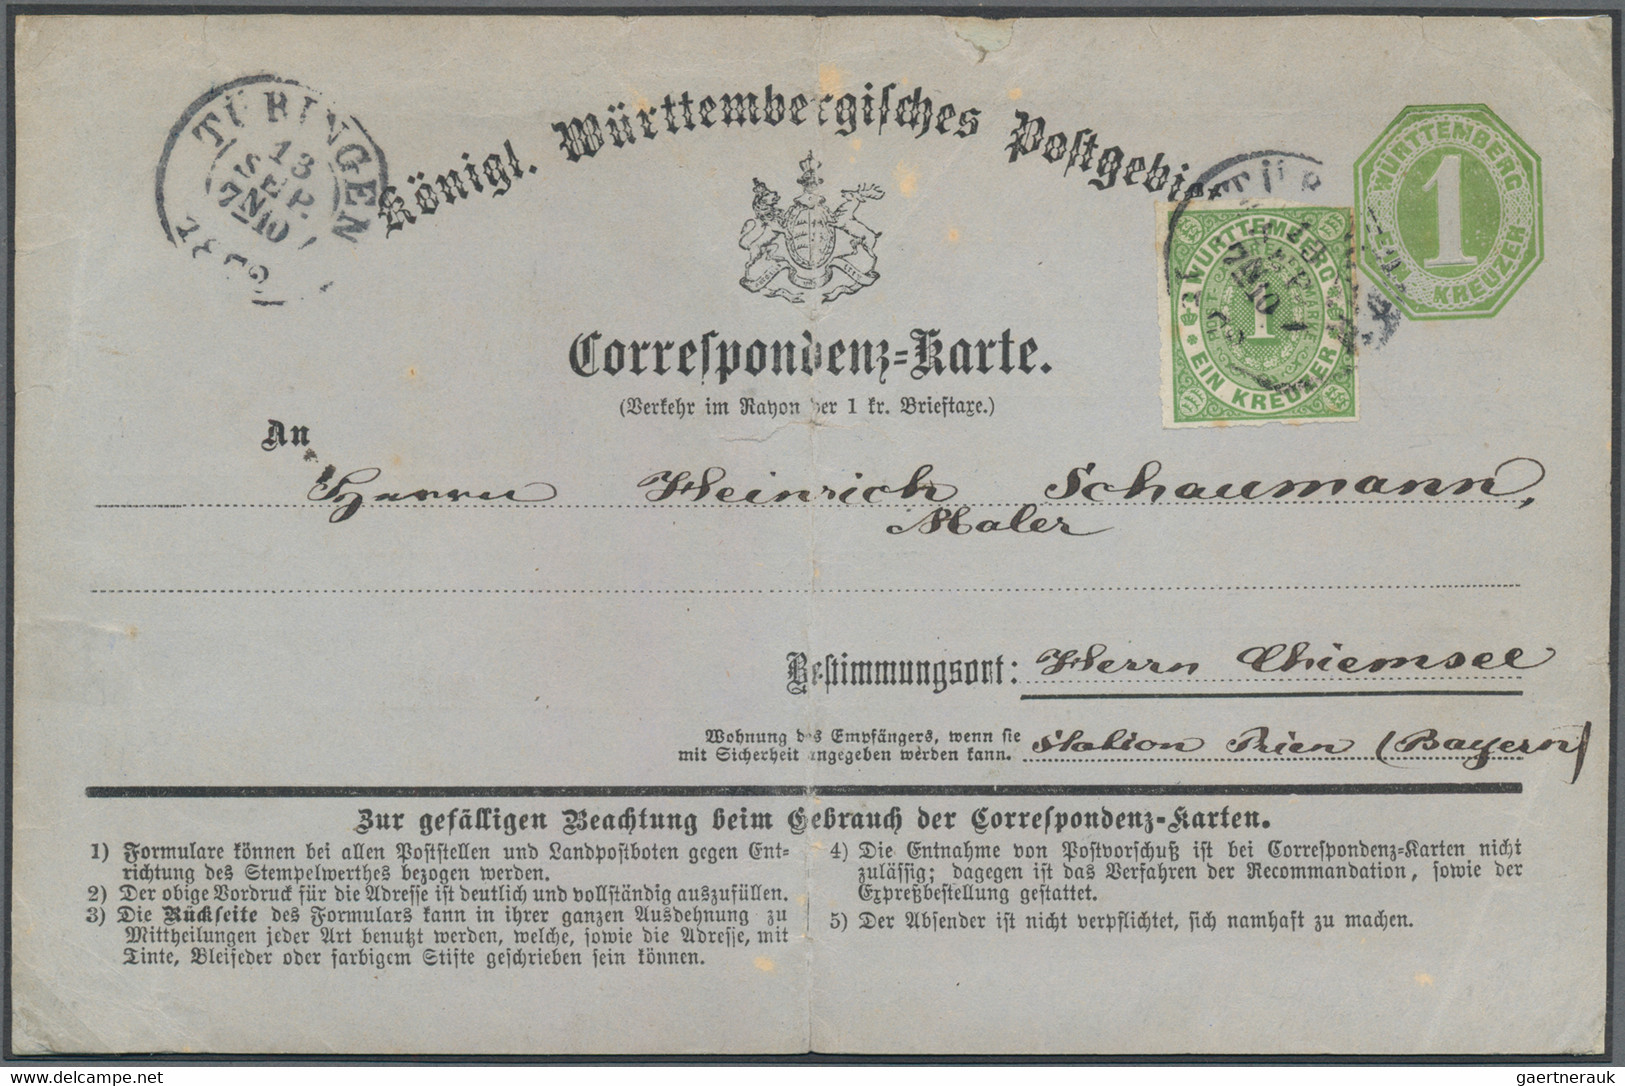 TÜBINGEN
13
SEP.
7N10
1
Königl. Württembergisches Postgebiet
WÜRTTEMBERG
1
KREUZER
WÜRTTEMBERG
POST-
1
EIN KREUZER
7N10
1
Correspondenz-Karte.
(Verkehr im Rayon der 1 kr. Brieftaxe.)
An
Herrn Heinrich Schaumann,
Maler
Bestimmungsort: Herrn Chiemsee
Wohnung des Empfängers, wenn sie
mit Sicherheit angegeben werden kann.
Station Prien (Bayern)
Zur gefälligen Beachtung beim Gebrauch der Correspondenz-Karten.
1) Formulare können bei allen Poststellen und Landpostboten gegen Ent-
richtung des Stempelwerthes bezogen werden.
2) Der obige Vordruck für die Adresse ist deutlich und vollständig auszufüllen.
3) Die Rückseite des Formulars kann in ihrer ganzen Ausdehnung zu
Mittheilungen jeder Art benutzt werden, welche, sowie die Adresse, mit
Tinte, Bleifeder oder farbigem Stifte geschrieben sein können.
4) Die Entnahme von Postvorschuß ist bei Correspondenz-Karten nicht
zulässig; dagegen ist das Verfahren der Recommandation, sowie der
Expreßbestellung gestattet.
5) Der Absender ist nicht verpflichtet, sich namhaft zu machen.
gaertnerauk